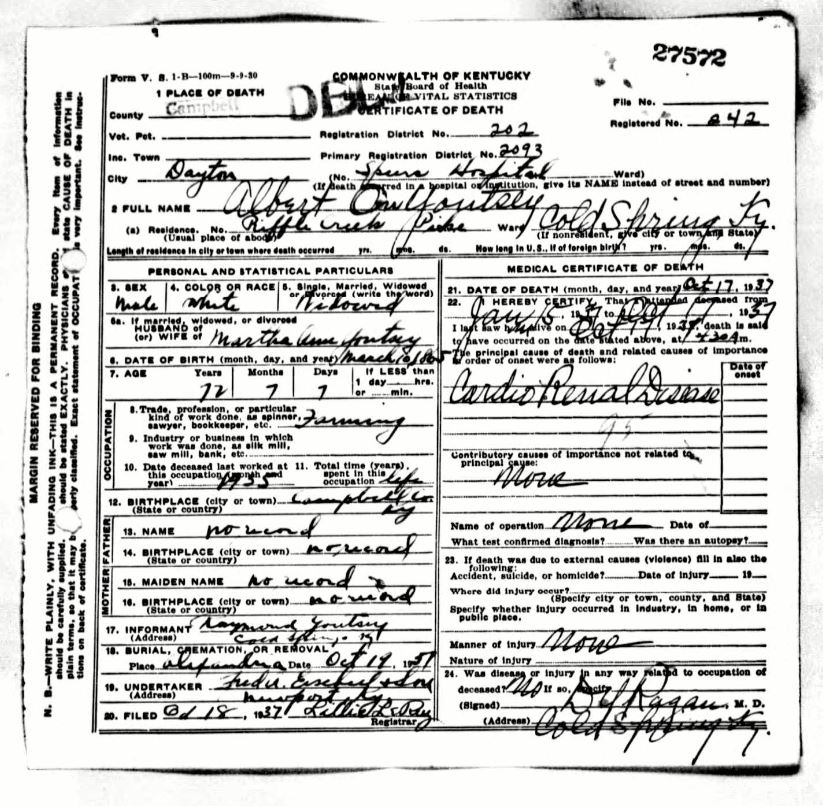 27572
Form V. S. 1-B—100m—9-9-30
COMMONWEALTH OF KENTUCKY
State Board of Health
BUREAU OF VITAL STATISTICS
CERTIFICATE OF DEATH
1 PLACE OF DEATH
County Campbell
File No.
Registered No. 242
Vot. Pct.
Registration District No. 202
Inc. Town
Primary Registration District No. 2093
City Dayton
(No. Spurs Hospital Ward)
(If death occurred in a hospital or institution, give its NAME instead of street and number)
2 FULL NAME Albert Youtsey
(a) Residence. No. Riffle Creek Pike Ward Cold Spring Ky.
(Usual place of abode) (If nonresident, give city or town and State)
Length of residence in city or town where death occurred yrs. mos. ds. How long in U. S., if of foreign birth? yrs. mos. ds.
PERSONAL AND STATISTICAL PARTICULARS
3. SEX 4. COLOR OR RACE 5. Single, Married, Widowed or Divorced (write the word)
Male White Widowed
5a. If married, widowed, or divorced
HUSBAND of
(or) WIFE of Martha Ann Youtsey
6. DATE OF BIRTH (month, day, and year) March 10 1865
7. AGE Years Months Days If LESS than
1 day hrs.
72 7 7 or min.
OCCUPATION
8. Trade, profession, or particular
kind of work done, as spinner,
sawyer, bookkeeper, etc. Farming
9. Industry or business in which
work was done, as silk mill,
saw mill, bank, etc.
10. Date deceased last worked at 11. Total time (years)
this occupation (month and spent in this
year) 1935 occupation life
12. BIRTHPLACE (city or town) Campbell Co.
(State or country) Ky
FATHER
13. NAME no record
14. BIRTHPLACE (city or town) no record
(State or country)
MOTHER
15. MAIDEN NAME no record
16. BIRTHPLACE (city or town) no record
(State or country)
17. INFORMANT Raymond Youtsey
(Address) Cold Springs Ky
18. BURIAL, CREMATION, OR REMOVAL
Place Alexandria Date Oct 19, 1937
19. UNDERTAKER & Son
(Address) Newport Ky
20. FILED Oct 18, 1937
Registrar
MEDICAL CERTIFICATE OF DEATH
21. DATE OF DEATH (month, day, and year) Oct 17, 1937
22. I HEREBY CERTIFY, That I attended deceased from
Jan 15, 1937 to Oct 17, 1937
I last saw him alive on Oct 17, 1937, death is said
to have occurred on the date stated above, at 4 30 A m.
The principal cause of death and related causes of importance
in order of onset were as follows:
Date of
onset
Cardio Renal Disease
95
Contributory causes of importance not related to
principal cause:
None
Name of operation None Date of
What test confirmed diagnosis? Was there an autopsy?
23. If death was due to external causes (violence) fill in also the
following:
Accident, suicide, or homicide? Date of injury 19
Where did injury occur?
(Specify city or town, county, and State)
Specify whether injury occurred in industry, in home, or in
public place.
Manner of injury None
Nature of injury
24. Was disease or injury in any way related to occupation of
deceased? No If so, specify
(Signed) Ragan M. D.
(Address) Cold Spring Ky.
MARGIN RESERVED FOR BINDING
N. B.—WRITE PLAINLY, WITH UNFADING INK—THIS IS A PERMANENT RECORD. Every item of information
should be carefully supplied. should be stated EXACTLY. PHYSICIANS state CAUSE OF DEATH in
plain terms, so that it may be properly classified. Exact statement of OCCUPATION is very important. See instruc-
tions on back of certificate.